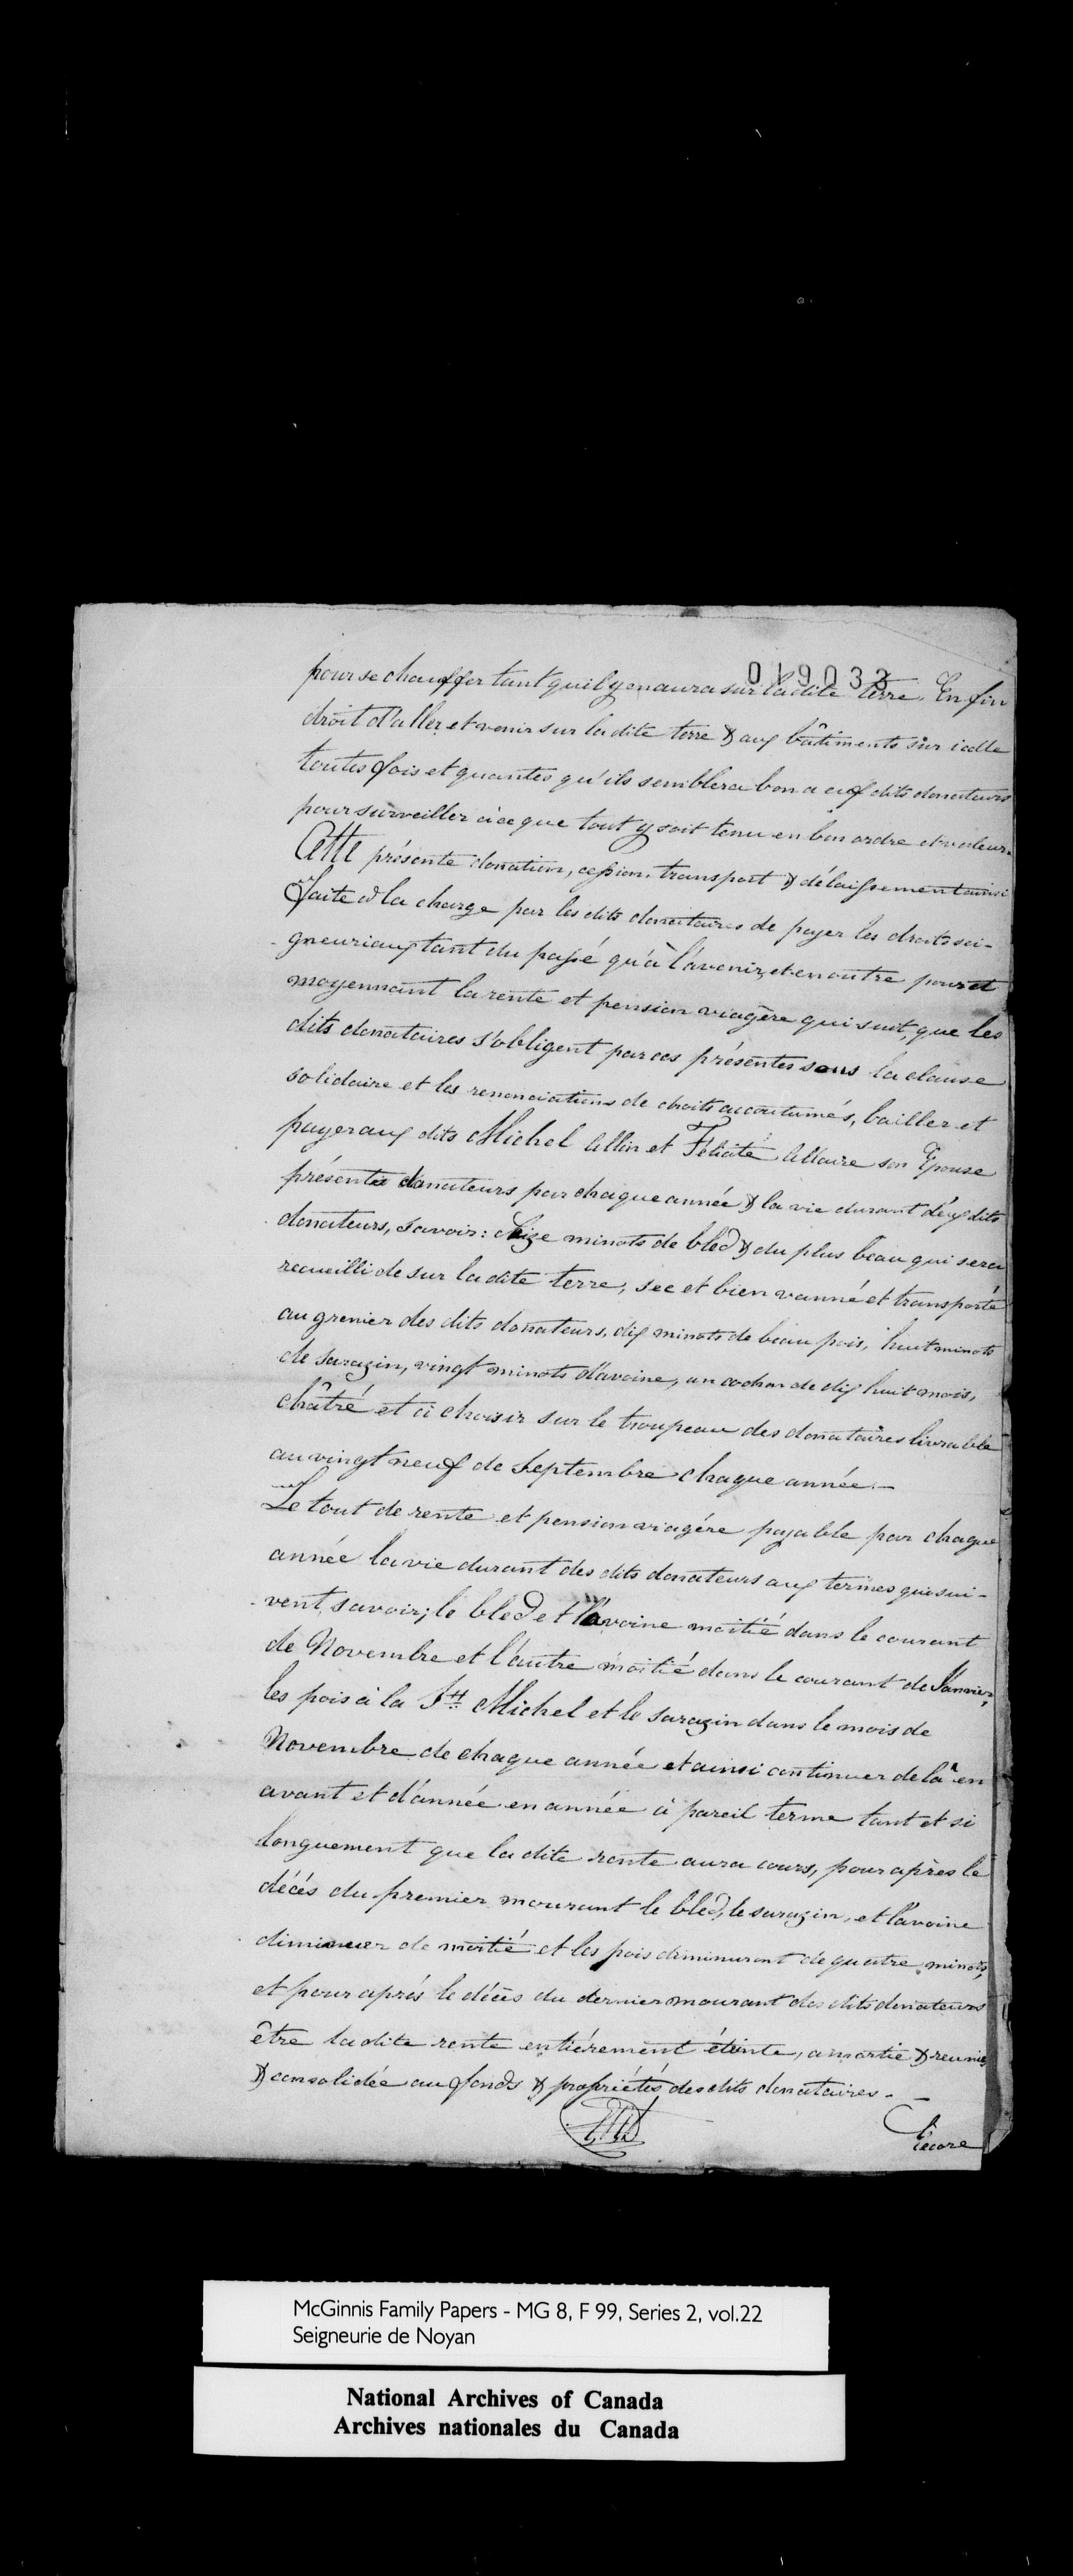 019033
pour se chauffer tant qu'il y en aura sur la dite terre. Enfin
droit d'aller et venir sur la dite terre & aux bâtiments sur icelle
toutes fois et quantes qu'ils semblera bon a eux dits donateurs
pour surveiller à ce que tout y soit tenu en bon ordre et valeur.
Cette présente donation, cession, transport & délaissement ainsi
faite à la charge par les dits donataires de payer les droits sei-
-gneuriaux tant du passé qu'à l'avenir, et en outre pour et
moyennant la rente et pension viagère qui suit, que les
dits donataires s'obligent par ces présentes sous la clause
solidaire et les renonciations de droits accoutumés, bailler et
payer aux dits Michel Allin et Félicité Allaire son Epouse
présente donateurs par chaque année & la vie durant d'eux dits
donateurs, savoir: Seize minots de bled & du plus beau qui sera
recueilli de sur la dite terre, sec et bien vanné et transporté
au grenier des dits donateurs, dix minots de beau pois, huit minots
de sarazin, vingt minots d'avoine, un cochon de dix huit mois,
châtré et à choisir sur le troupeau des donataires livrable
au vingt neuf de Septembre chaque année.—
Le tout de rente et pension viagére payable par chaque
année la vie durant des dits donateurs aux termes qui sui-
-vent, savoir; le bled et l'avoine moitié dans le courant
de Novembre et l'autre moitié dans le courant de Janvier,
les pois à la St Michel et le sarazin dans le mois de
Novembre de chaque année et ainsi continuer de là en
avant et d'année en année à pareil terme tant et si
longuement que la dite rente aura cours, pour après le
décés du premier mourant le bled, le sarazin, et l'avoine
diminuer de moitié et les pois diminuront de quatre minots,
et pour aprés le décès du dernier mourant des dits donateurs
être la dite rente entiérement éteinte, amortie & reunie
& consolidée au fonds & propriétés des dits donataires.—
Encore
McGinnis Family Papers - MG 8, F 99, Series 2, vol.22
Seigneurie de Noyan
National Archives of Canada
Archives nationales du Canada